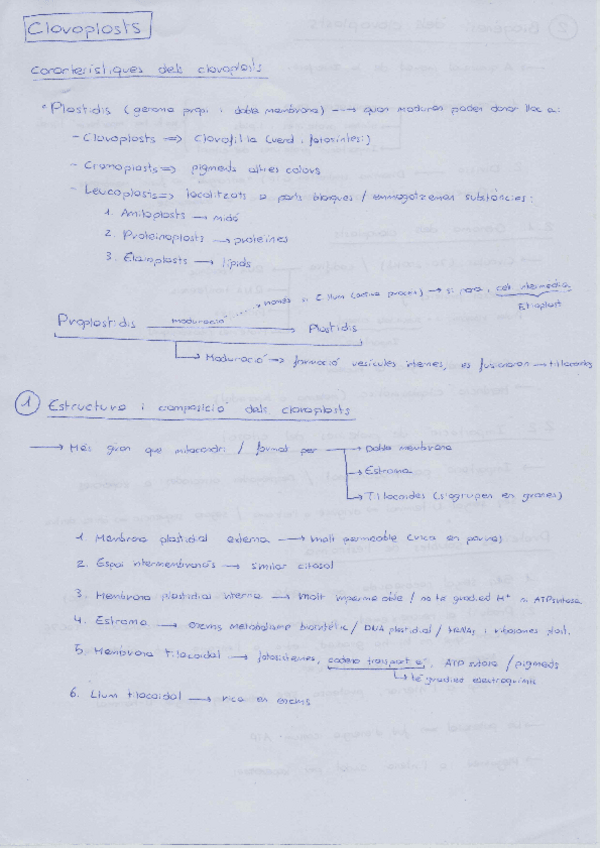 Cloroplasts
Característiques dels cloroplasts
• Plastidis (genoma propi i doble membrana) --→ quan maduren poden donar lloc a:
- Cloroplasts => Clorofil·la (verd, fotosíntesi)
- Cromoplasts => pigments altres colors
- Leucoplasts => localitzats a parts blanques / emmagatzemen substàncies:
1. Amiloplasts → midó
2. Proteinoplasts → proteïnes
3. Elaioplasts → lípids
només si llum (activa procés) → si para, cels. intermèdia.
Etioplast
Proplastidis maduració → Plastidis
→ Maduració → formació vesícules internes, es fusionaran → tilacoides
1 Estructura i composició dels cloroplasts
→ Més gran que mitocondri / format per → Doble membrana
→ Estroma
→ Tilacoides (s'agrupen en granes)
1. Membrana plastidial externa → molt permeable (rica en porines)
2. Espai intermembranós → similar citosol
3. Membrana plastidial interna → molt impermeable / no té gradient H+ ni ATPsintasa
4. Estroma → enzims metabolisme biosintètic / DNA plastidial / tRNAs i ribosomes plast.
5. Membrana tilacoidal → fotosistemes, cadena transport e-, ATP sintasa / pigments
→ té gradient electroquímic
6. Llum tilacoidal → rica en enzims